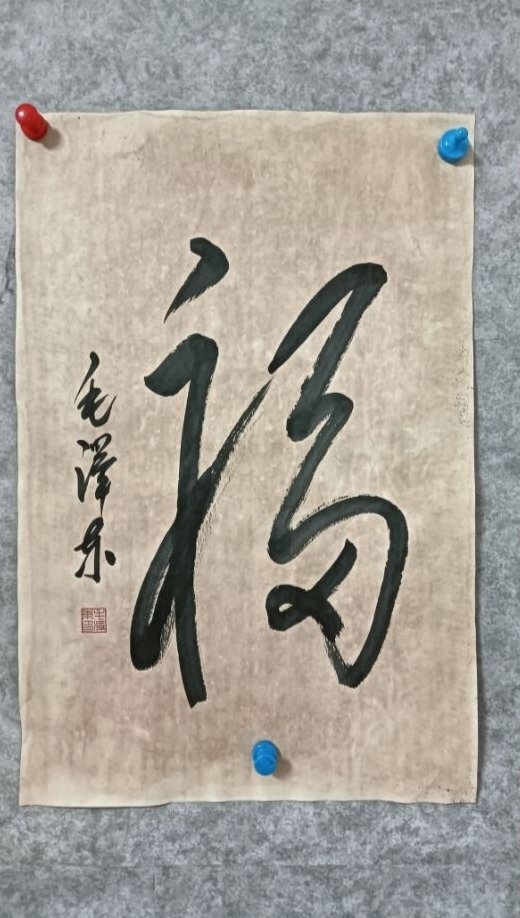 福
毛泽东